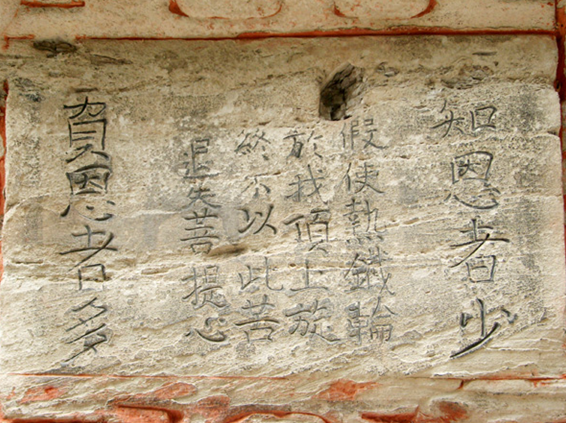 知恩者少
假使熱鐵輪
於我頂上旋
終不以此苦
退失菩提心
負恩者多